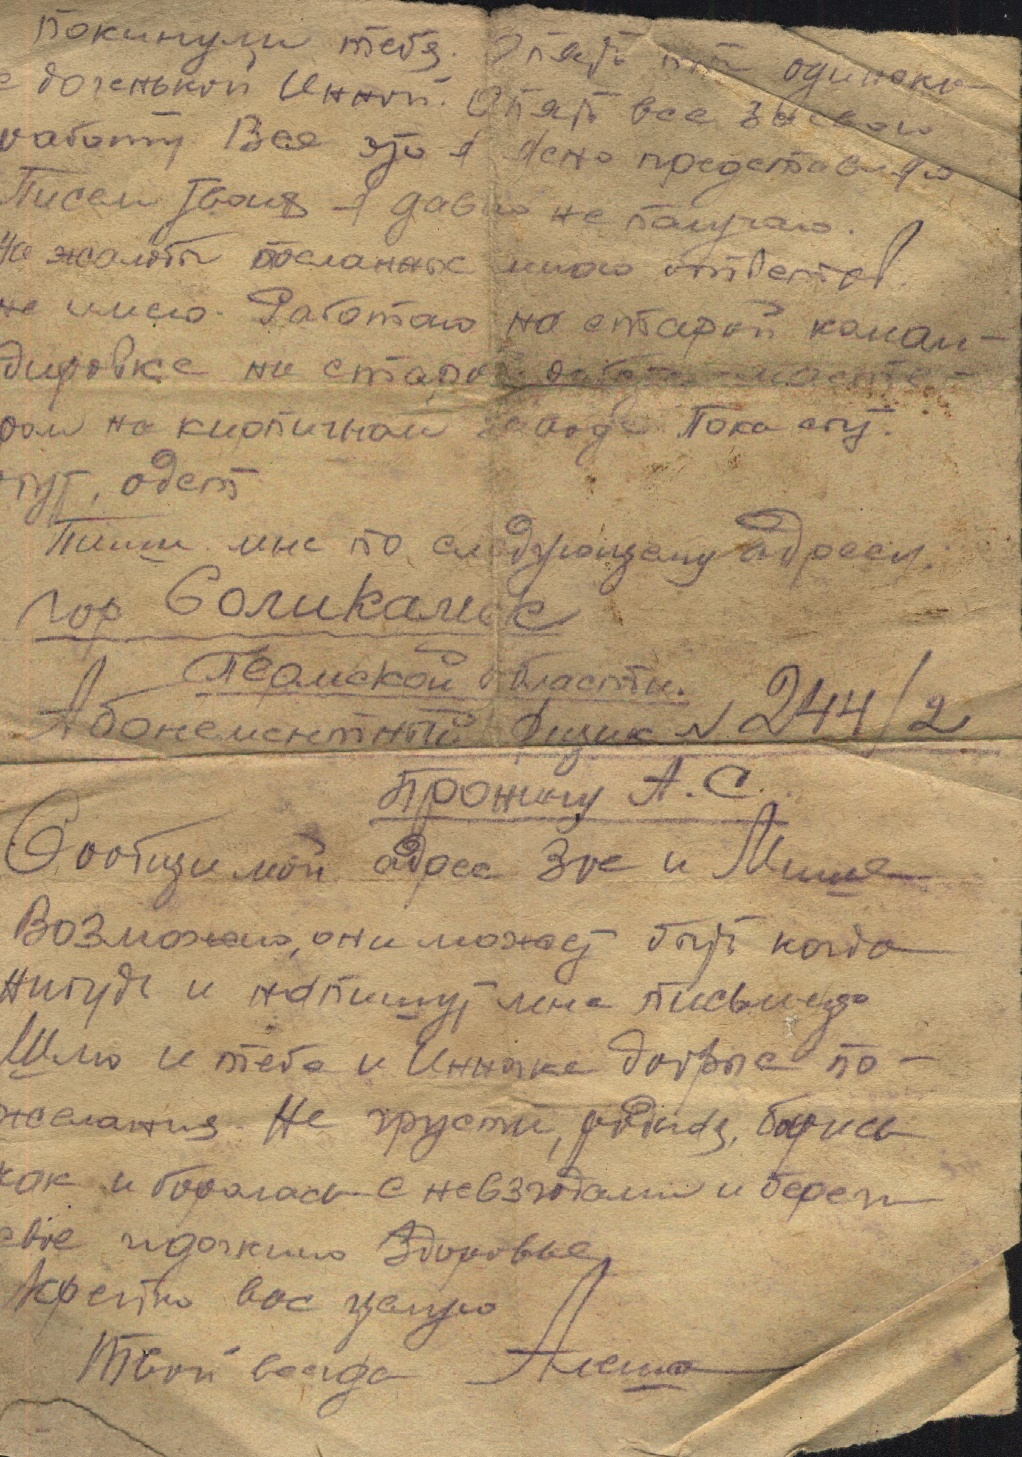 покинули тебя. Опять ты одинока
с доченькой Инной. Опять все
работу Все это я ясно представляю
Писем твоих я давно не получаю.
На жалобы посланные мною ответов
не имею. Работаю на старой коман-
дировке на старой работе - масте-
ром на кирпичном заводе Пока сыт.
обут, одет
Пиши мне по следующему адресу.
гор Соликамск
Пермской области.
Абонементный ящик № 244/2
Пронину А.С.
Сообщи мой адрес Зое и Мише
Возможно, они может быть когда
нибудь и напишут мне письмецо
Шлю и тебе и Инночке добрые по-
желания. Не грусти, родная, борись
как и боролась с невзгодами и береги
свое и дочкино здоровье
Крепко вас целую
Твой всегда Алеша